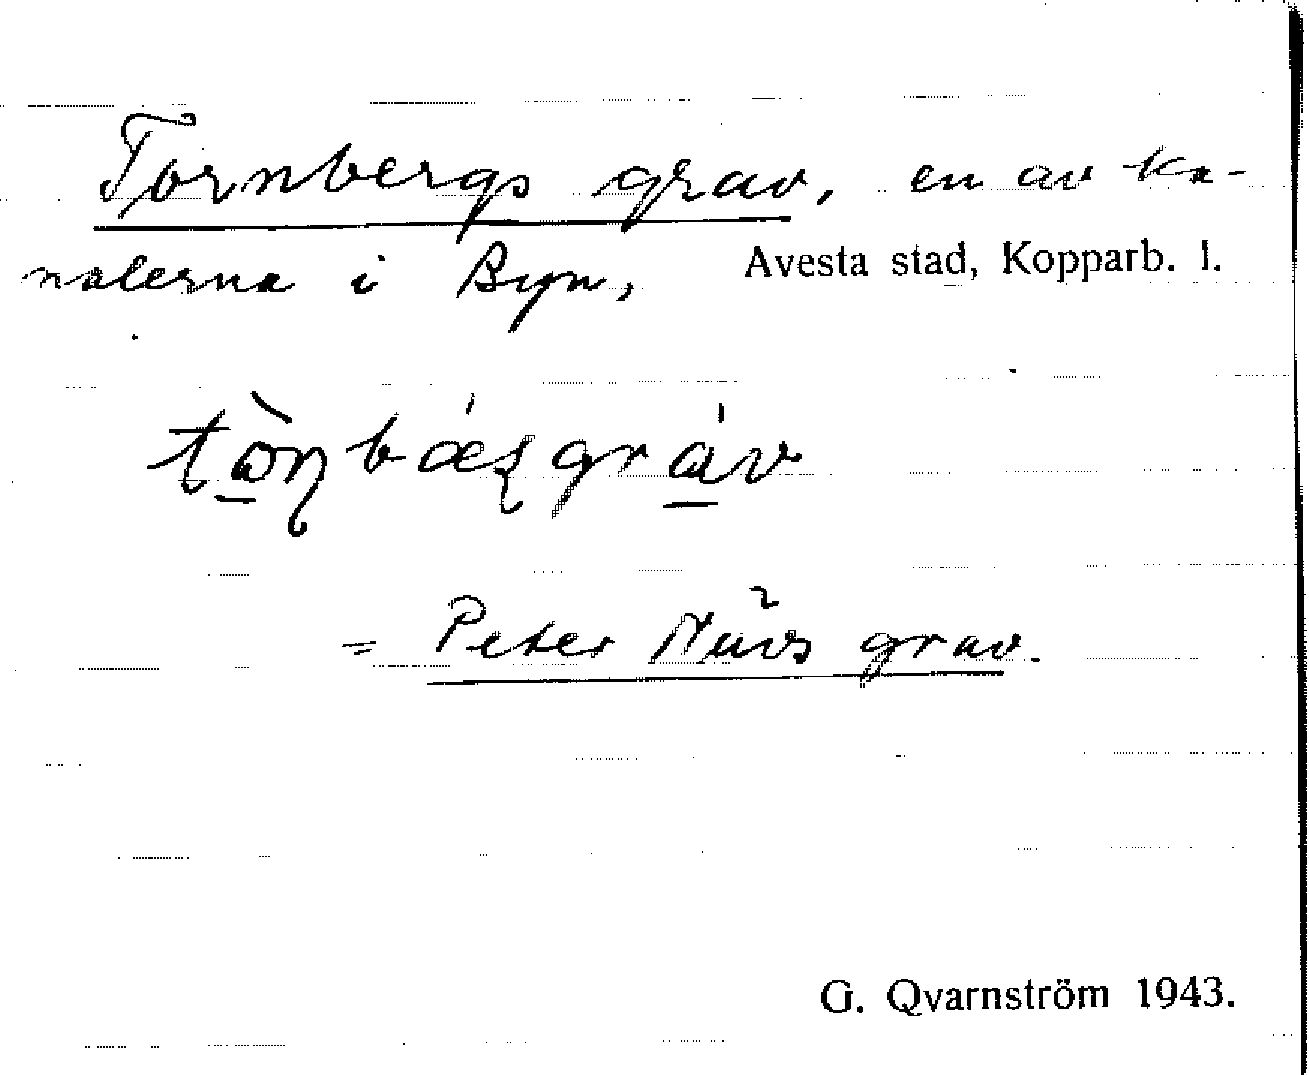 Tornbergs grav, en av ka-
nalerna i Byn,
Avesta stad, Kopparb. l.
= Peter grav.
G. Qvarnström 1943.